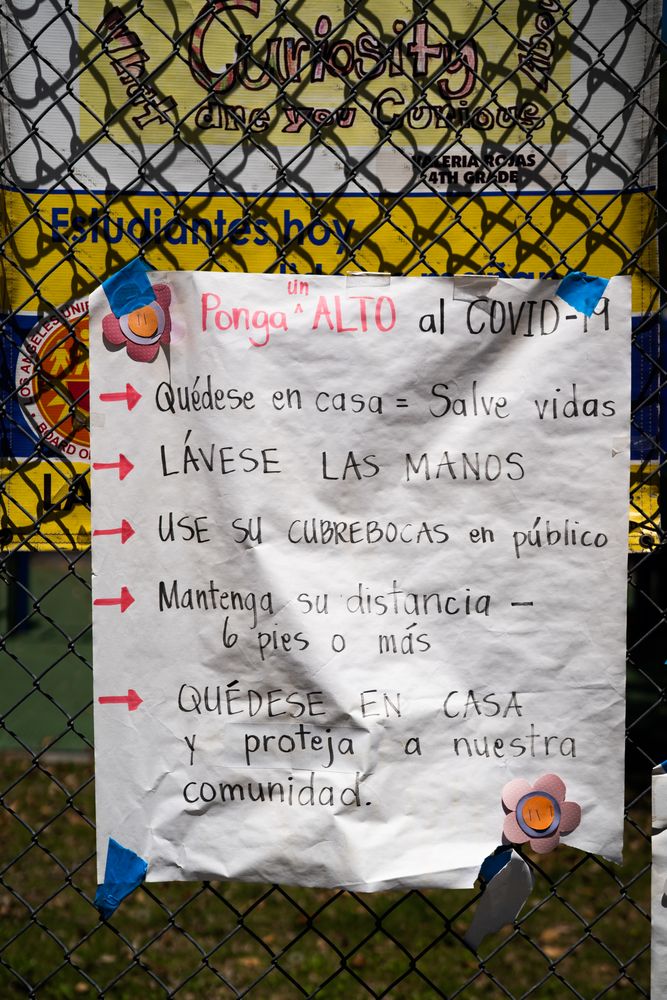 Curiosity
What are you Curious About
VALERIA ROJAS
4TH GRADE
Estudiantes hoy
LOS ANGELES UNI
BOARD O
LA
Ponga un ALTO al COVID-19
→ Quédese en casa = Salve vidas
→ LÁVESE LAS MANOS
→ USE SU CUBREBOCAS en público
→ Mantenga su distancia –
6 pies o más
→ QUÉDESE EN CASA
y proteja a nuestra
comunidad.